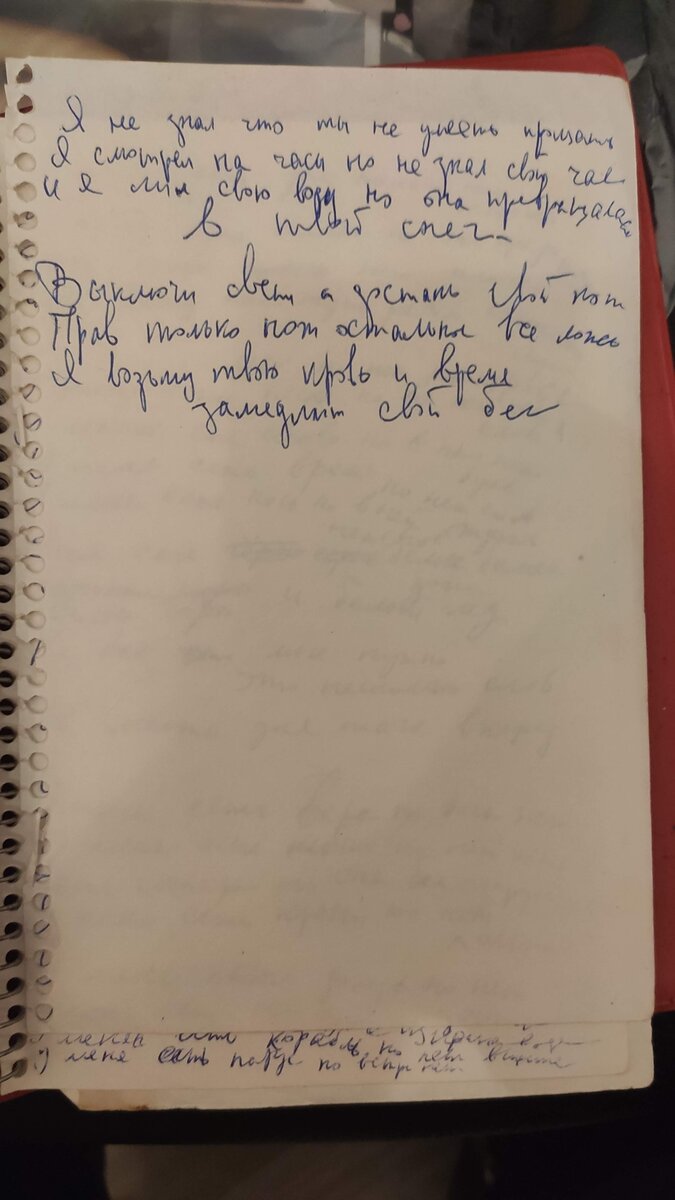 Я не знал что ты не умеешь прощать
Я смотрел на часы но не знал свой час
И я лил свою воду но она превращалась
в твой снег
Выключи свет и достань свой нож
Прав только нож остальные все ложь
Я возьму твою кровь и время
замедлит свой бег
меня есть корабль но
У меня есть парус но ветра нет